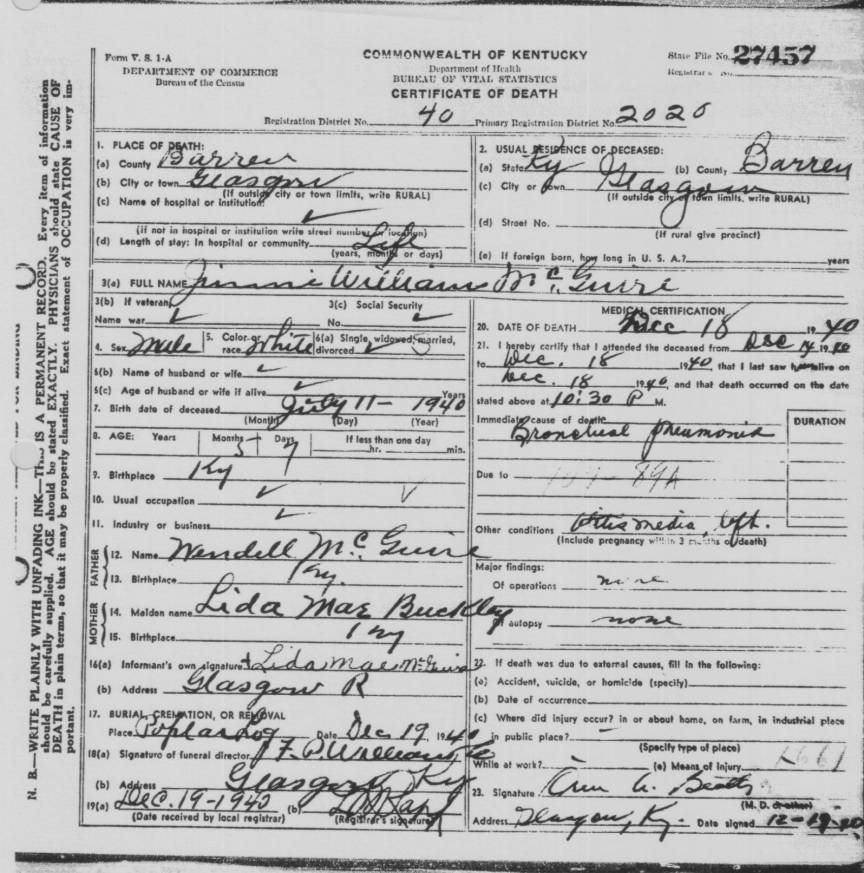 Form V. S. 1-A
DEPARTMENT OF COMMERCE
Bureau of the Census
COMMONWEALTH OF KENTUCKY
Department of Health
BUREAU OF VITAL STATISTICS
CERTIFICATE OF DEATH
State File No. 27457
Registrar's No.
Registration District No. 40 Primary Registration District No. 2020
N. B.—WRITE PLAINLY WITH UNFADING INK—THIS IS A PERMANENT RECORD. Every item of information
should be carefully supplied. AGE should be stated EXACTLY. PHYSICIANS should state CAUSE OF
DEATH in plain terms, so that it may be properly classified. Exact statement of OCCUPATION is very im-
portant.
1. PLACE OF DEATH:
(a) County Barren
(b) City or town Glasgow
(If outside city or town limits, write RURAL)
(c) Name of hospital or institution:
✓
(if not in hospital or institution write street number or location)
(d) Length of stay: In hospital or community Life
(years, months or days)
2. USUAL RESIDENCE OF DECEASED:
(a) State Ky (b) County Barren
(c) City or town Glasgow
(If outside city or town limits, write RURAL)
(d) Street No.
(If rural give precinct)
(e) If foreign born, how long in U. S. A.? years
3(a) FULL NAME Jimmie William McGuire
3(b) If veteran,
Name war ✓
3(c) Social Security
No. ✓
4. Sex Male 5. Color or race White 6(a) Single, widowed, married, divorced ✓ S
6(b) Name of husband or wife ✓
6(c) Age of husband or wife if alive ✓ Years
7. Birth date of deceased July 11- 1940
(Month) (Day) (Year)
8. AGE: Years Months 5 Days 7 If less than one day
hr. min.
9. Birthplace Ky
10. Usual occupation ✓
11. Industry or business ✓
FATHER
12. Name Wendell McGuire
13. Birthplace Ky.
MOTHER
14. Maiden name Lida Mae Buckley
15. Birthplace Ky
16(a) Informant's own signature Lida Mae McGuire
(b) Address Glasgow R
17. BURIAL, CREMATION, OR REMOVAL
Place Poplar Log Date Dec 19, 1940
18(a) Signature of funeral director
(b) Address Glasgow, Ky
19(a) Dec. 19-1940 (b)
(Date received by local registrar) (Registrar's signature)
MEDICAL CERTIFICATION
20. DATE OF DEATH Dec 18 1940
21. I hereby certify that I attended the deceased from Dec 14 1940
to Dec. 18 1940, that I last saw alive on
Dec. 18 1940, and that death occurred on the date
stated above at 10:30 P M.
Immediate cause of death
Bronchial pneumonia
DURATION
Due to
Other conditions Otitis media, left.
(Include pregnancy within 3 months of death)
Major findings:
Of operations none
Of autopsy none
22. If death was due to external causes, fill in the following:
(a) Accident, suicide, or homicide (specify)
(b) Date of occurrence
(c) Where did injury occur? in or about home, on farm, in industrial place
in public place?
(Specify type of place)
While at work? (e) Means of Injury
23. Signature
(M. D. or other)
Address Glasgow, Ky. Date signed 12-19-40